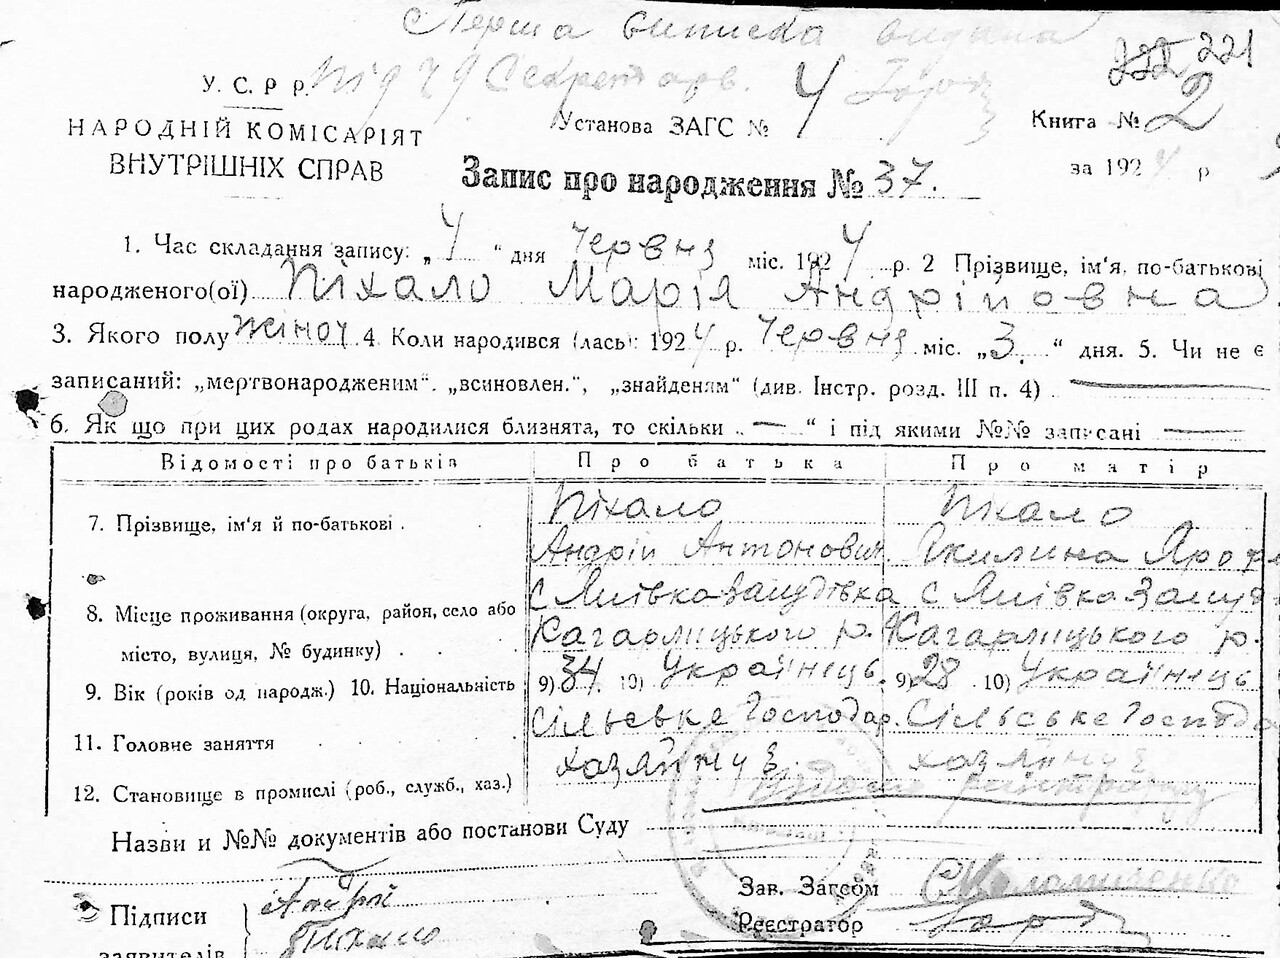 Перша виписка видана
під 79 Секретар.
У. С. Р р.
НАРОДНІЙ КОМІСАРІЯТ
ВНУТРІШНІХ СПРАВ
Установа ЗАГС № 4
221
Книга № 2
за 1924 р
Запис про народження № 37.
1. Час складання запису: „4“ дня Червня міс. 1924 р. 2 Прізвище, ім'я, по-батькові
народженого(ої) Піхало Марія Андріповна
3. Якого полу жіноч 4. Коли народився (лась): 1924 р. Червня міс. „3.“ дня. 5. Чи не є
записаний: „мертвонародженим“. „всиновлен.“, „знайденям“ (див. Інстр. розд. III п. 4)
6. Як що при цих родах народилися близнята, то скільки „—“ і під якими №№ записані —
Відомості про батьків Про батька Про матір
7. Прізвище, ім'я й по-батькові . Піхало Піхало
Андрій Антонович Килина Яроф
8. Місце проживання (округа, район, село або с Янівка Зашудівка с Янівка Зашуд
місто, вулиця, № будинку) . . Кагарлицького р. Кагарлицького р.
9. Вік (років од народж.) 10. Національність 9) 34. 10) Українець. 9) 28 . 10) Українець
11. Головне заняття Сільське Господар. Сільське Господа
12. Становище в промислі (роб., служб., хаз.) хазяйнує хазяйнує
Назви и №№ документів або постанови Суду
Зав. Загсом Коломиченко
Підписи Андрій
Реєстратор
заявителів Піхало